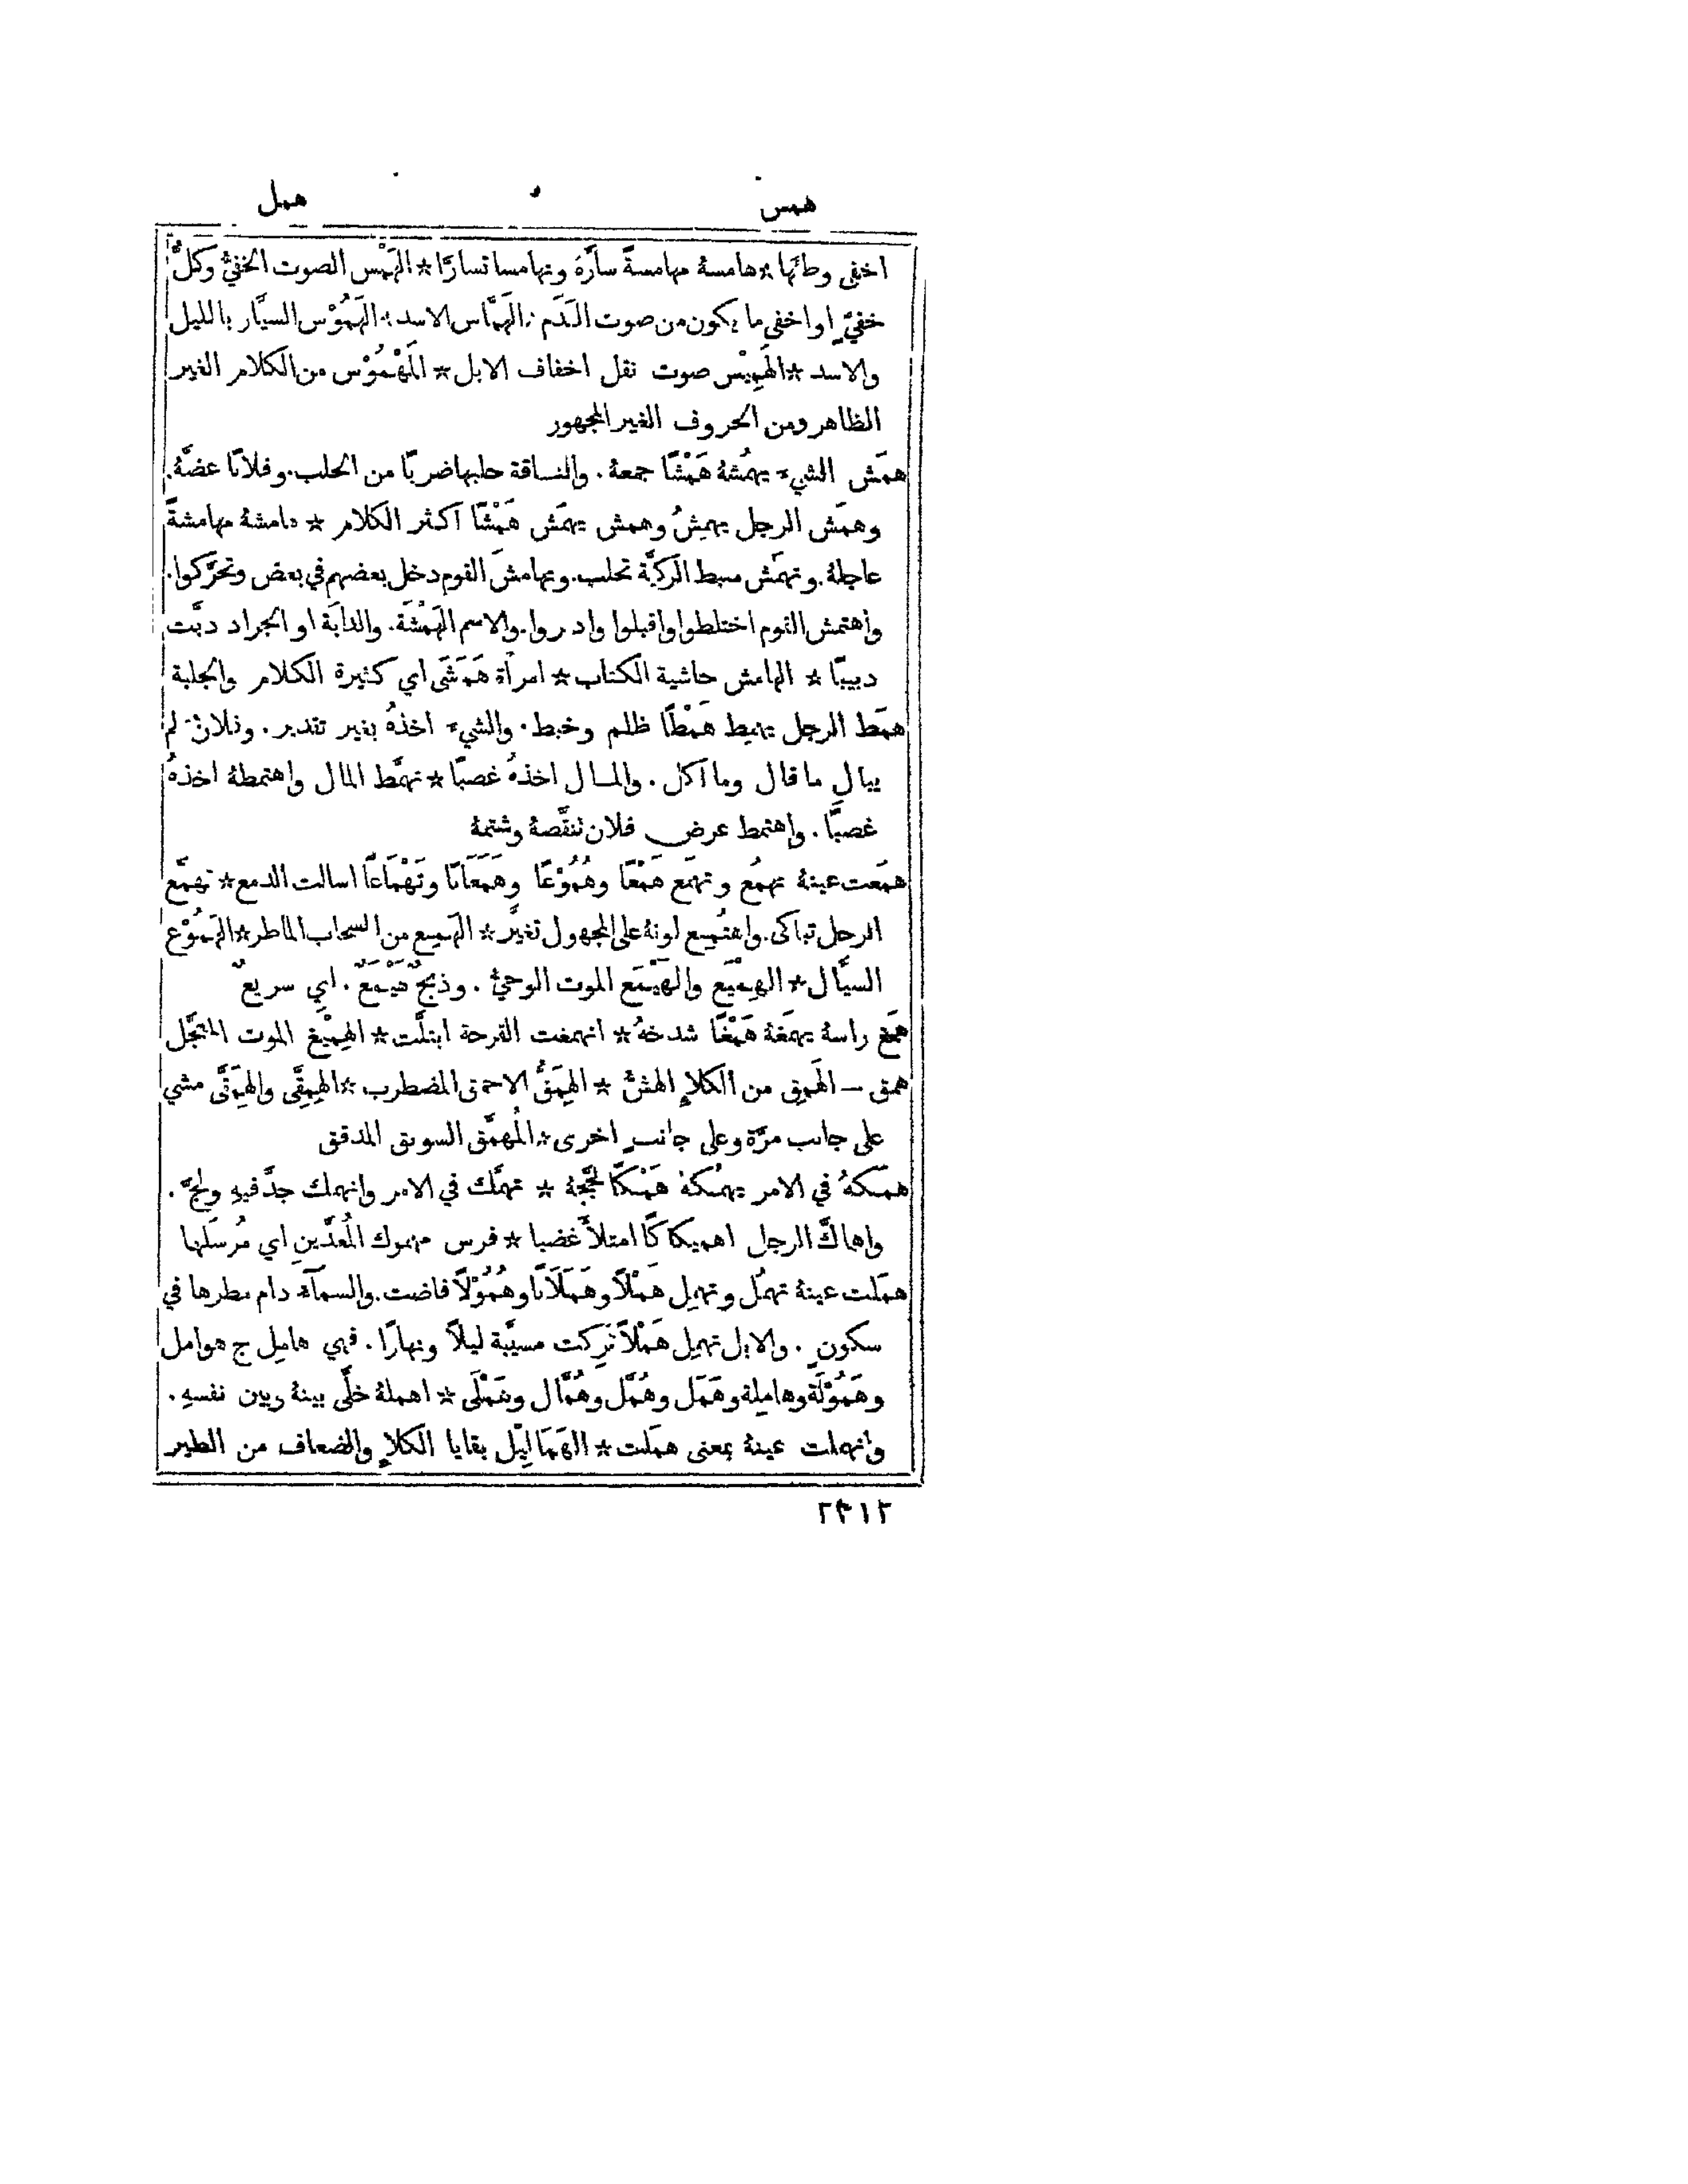 همس همل
اخفى وطائها * هامسهُ مهامسةً سارَّهُ وتهامسا تسارَّا * الهَمْس الصوت الخفيُّ وكلُّ
خفيٍّ او اخفى ما يكون من صوت القدَم * الهَمَّاس الاسد * الهَمُوْس السيَّار بالليل
والاسد * الهَمِيْس صوت نقل اخفاف الابل * المَهْمُوْس من الكلام الغير
الظاهر ومن الحروف الغير المجهور
همَش الشيءَ يهمُشهُ هَمْشًا جمعهُ. والنـاقة حلبها ضربًا من الحلب. وفلانًا عضَّهُ.
وهمَش الرجل يهمِشُ وهمش يهمَش هَمْشًا اكثر الكلام * هامشهُ مهامشةً
عاجلهُ. وتهمَّش الركيَّة تحلب. وتهامشَ القوم دخل بعضهم في بعض وتحرَّكوا.
واهتمش القوم اختلطوا واقبلوا وادبروا. والاسم الهَمْشَة. والدابَّة او الجراد دبَّت
دبيبًا * الهامش حاشية الكتاب * امرأَة هَمَشَى اي كثيرة الكلام والجلبة
همَط الرجل يهمِط هَمْطًا ظلم وخبط. والشيءَ اخذهُ بغير تقدير. وفلانٌ لم
يبالِ ما قال وما اكل. والمـال اخذهُ غصبًا * تهمَّط المال واهتمطهُ اخذهُ
غصبًا. واهتمط عرض فلان تنقَّصهُ وشتمهُ
همَعَت عينهُ تهمُع وتهمَع هَمْعًا وهُمُوْعًا وهَمَعَانًا وتَهْمَاعًا اسالت الدمع * تهمَّع
الرجل تباكى. واهتُمِع لونهُ على المجهول تغيَّر * الهَمِع من السحاب الماطر * الهَمُوْع
السيَّال * الهِمْيَع والهَيْمَع الموت الوحيُّ. وذبحٌ هَيْمَعٌ. اي سريعٌ
همَغ راسهُ يهمَغهُ هَمْغًا شدخهُ * انهمغت القرحة ابتلَّت * الهِمْيَغ الموت المعجَّل
همق — الهَمِق من الكلإِ الهشُّ * الهِمَقُّ الاحمق المضطرب * الهِمِقَّى والهِمَقَّى مشي
على جانب مرَّة وعلى جانبٍ اخرى * المُهمَّق السويق المدقق
همَكهُ في الامر يهمُكهُ هَمْكًا لجَّجهُ * تهمَّك في الامر وانهمك جدَّ فيهِ ولجَّ.
واهماكَّ الرجل اهميكاكًا امتلأَ غضبا * فرس مهموك المُعَدَّين اي مُرسَلها
همَلت عينهُ تهمُل وتهمِل هَمْلًا وهَمَلَانًا وهُمُوْلًا فاضت. والسمآءُ دام مطرها في
سكونٍ. والابل تهمِل هَمْلًا تُرِكت مسيَّبة ليلًا ونهارًا. فهي هامِل ج هوامل
وهَمُوْلَة وهامِلة وهَمَل وهُمَّل وهُمَّال وهَمْلَى * اهملهُ خلَّى بينهُ وبين نفسهِ.
وانهملت عينهُ بمعنى همَلت * الهَمَالِيْل بقايا الكلإِ والضعاف من الطير